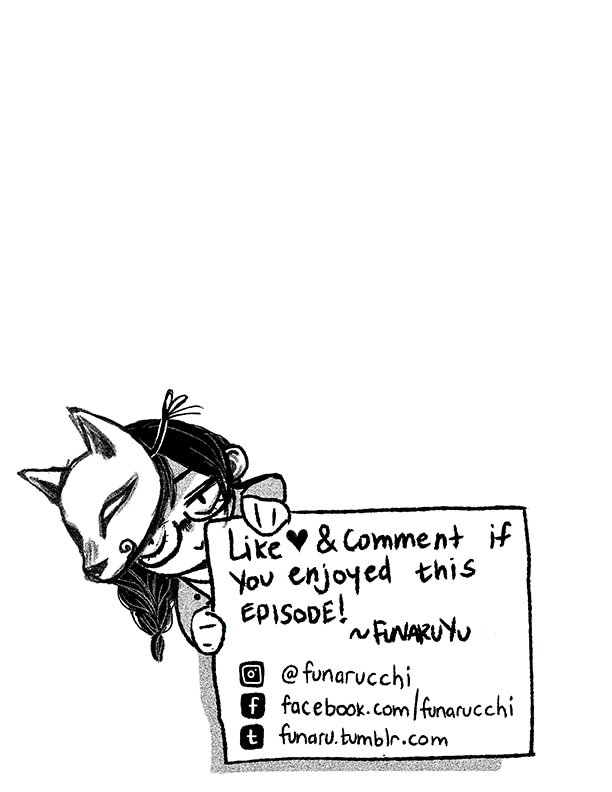 Like ♥ & Comment if
You enjoyed this
EPISODE!
~FUNARUYU
@funarucchi
facebook.com/funarucchi
funaru.tumblr.com